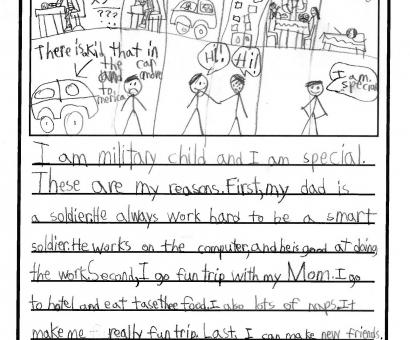 ???
There is kid that in
the car
and move
to
merica
Hi!
Hi!
I am
special
I am military child and I am special.
These are my reasons. First, my dad is
a soldier. He always work hard to be a smart
soldier. He works on the computer, and he is good at doing
the work. Second, I go fun trip with my Mom. I go
to hotel and eat tasethee food. I also lots of naps. It
make me really fun trip. Last, I can make new friends.